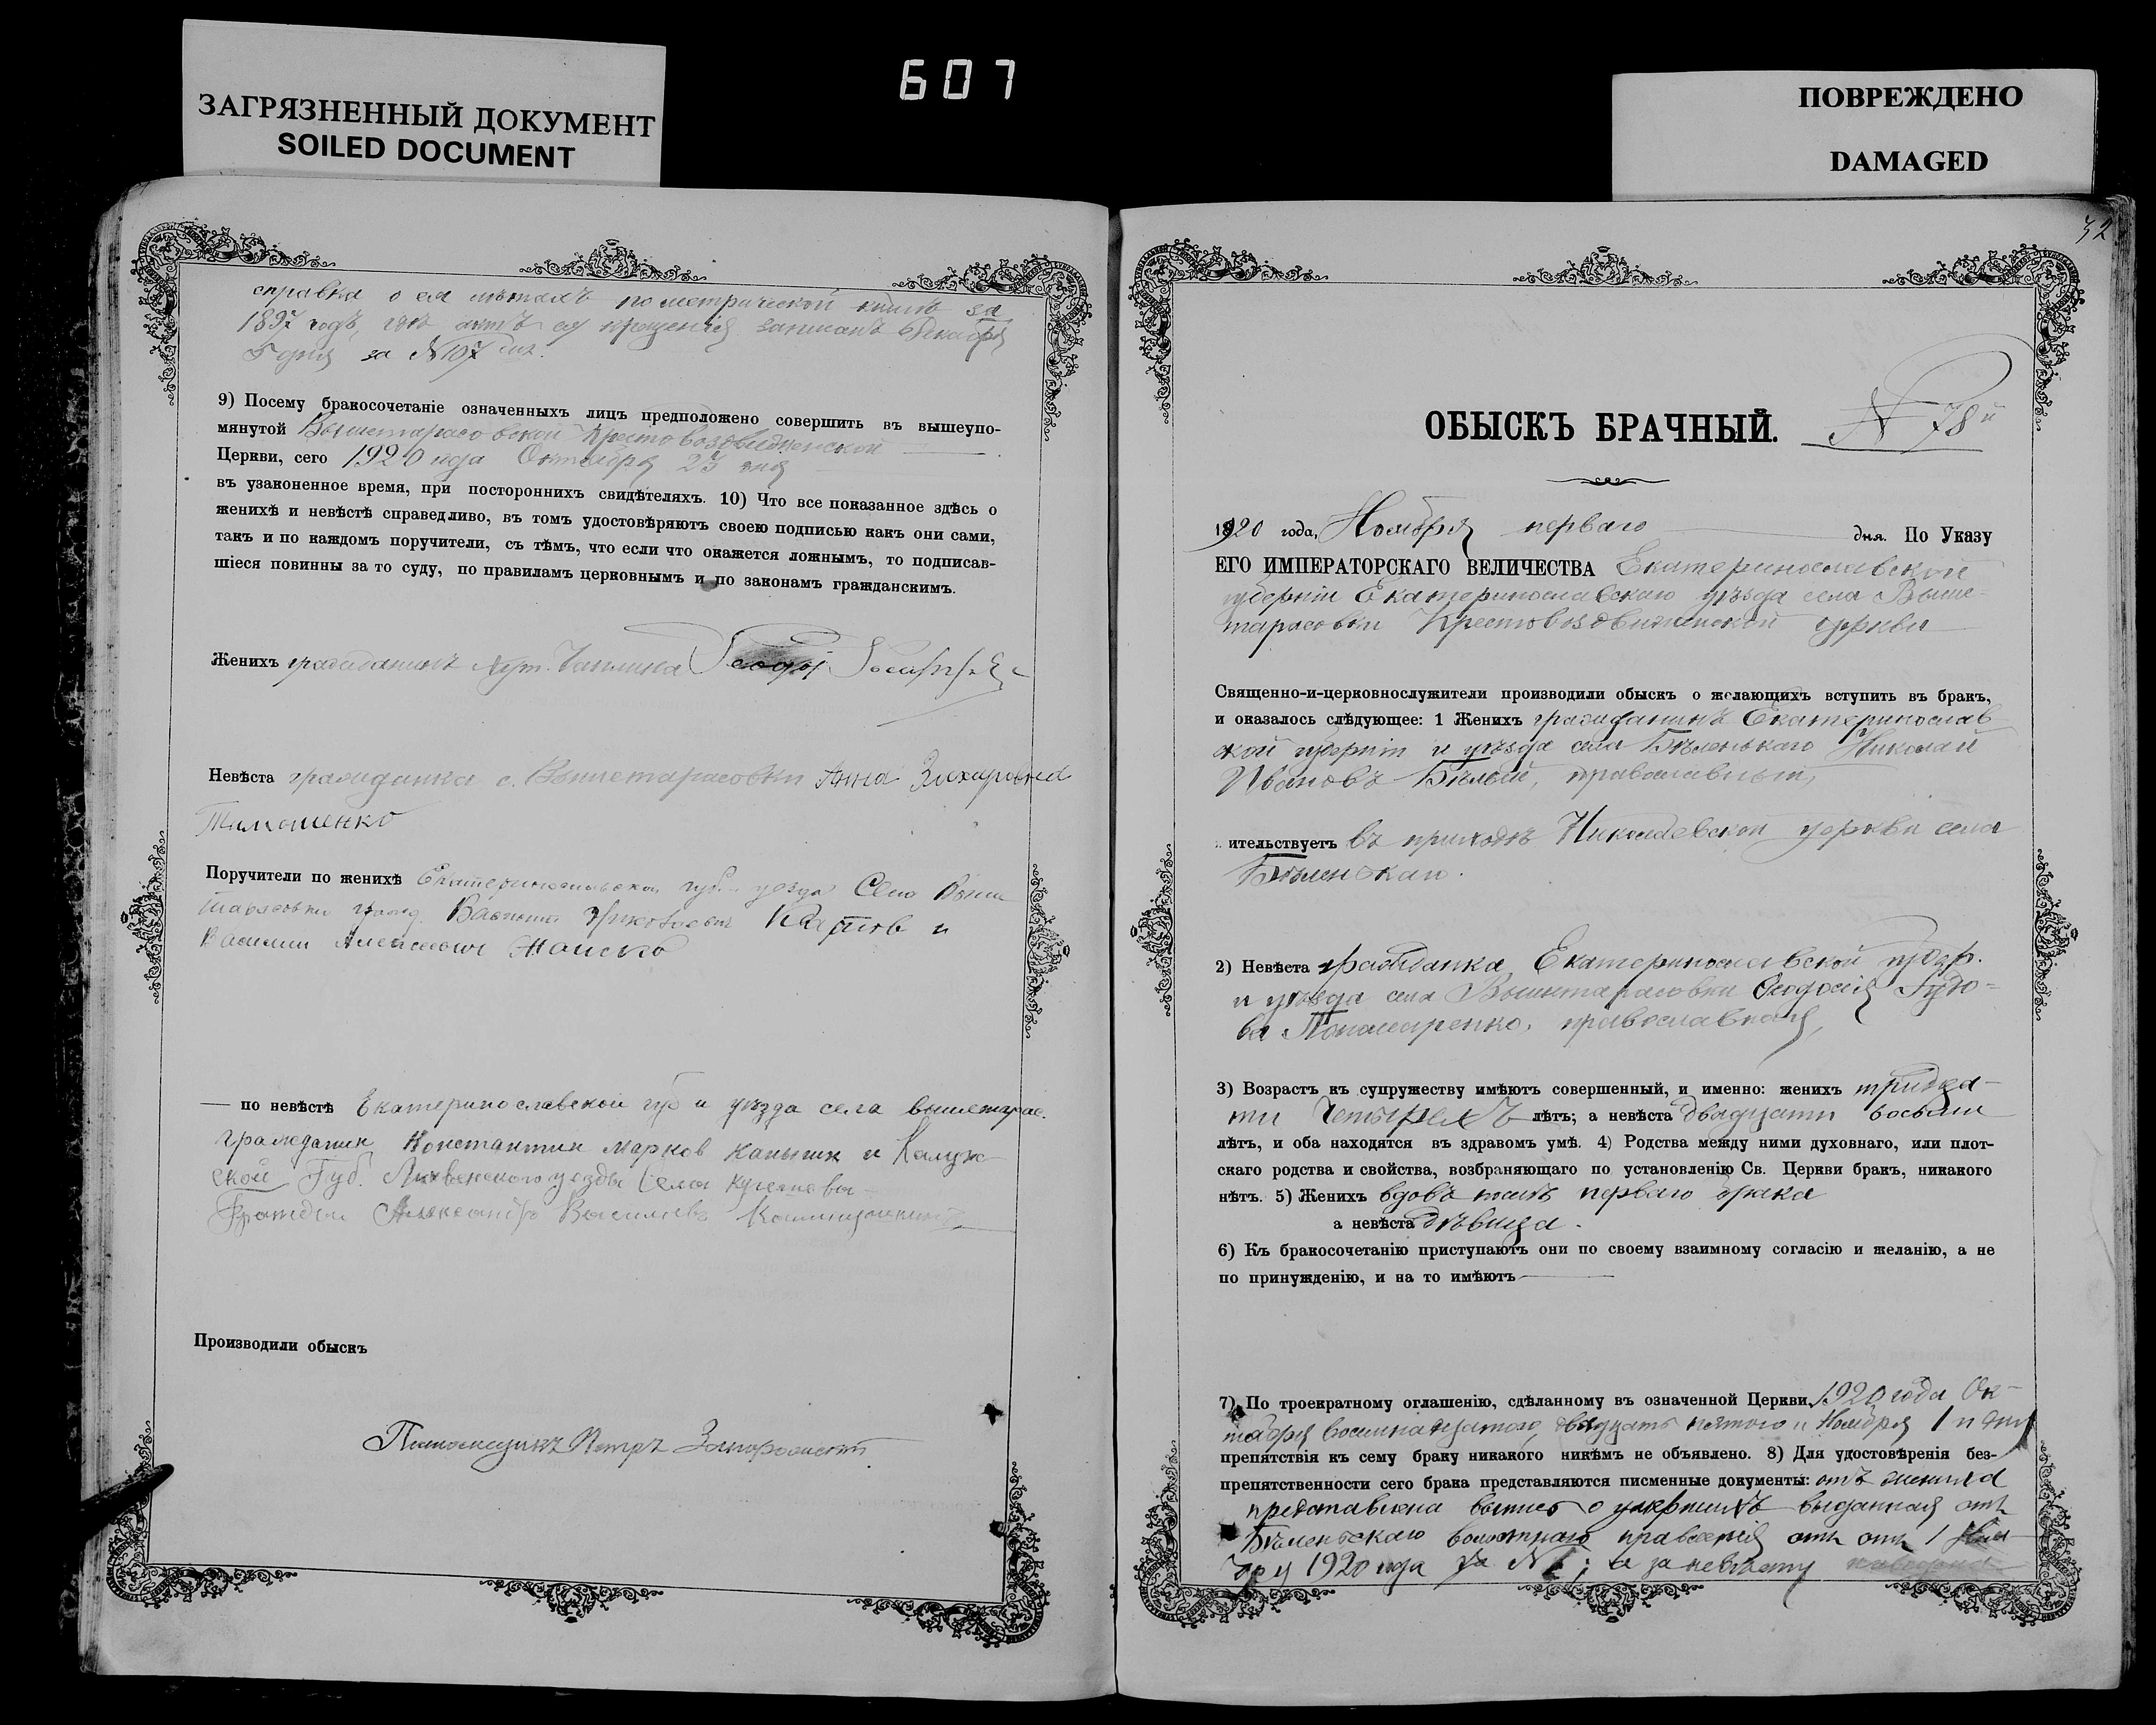 607
ЗАГРЯЗНЕННЫЙ ДОКУМЕНТ
SOILED DOCUMENT
ПОВРЕЖДЕНО
DAMAGED
справка о ея лѣтахъ по метрической книгѣ за
1897 годъ, гдѣ актъ ея крещенія записанъ декабря
5 дня за №107
9) Посему бракосочетаніе означенныхъ лицъ предположено совершить въ вышеупо-
мянутой Вышетарасовской Крестовоздвиженской
Церкви, сего 1920 года Октября 25 дня
въ узаконенное время, при постороннихъ свидѣтеляхъ. 10) Что все показанное здѣсь о
женихѣ и невѣстѣ справедливо, въ томъ удостовѣряютъ своею подписью какъ они сами,
такъ и по каждомъ поручители, съ тѣмъ, что если что окажется ложнымъ, то подписав-
шіеся повинны за то суду, по правиламъ церковнымъ и по законамъ гражданскимъ.
Женихъ гражданинъ
Невѣста гражданка с. Вышетарасовки Анна Захаровна
Тимошенко
Поручители по женихѣ Екатеринославской губ. уезда Село Выше
тарасовки гражд.
Василий Алексеевич
— по невѣстѣ Екатеринославской губ и уезда села вышетарас.
гражданин Константин Марков Капыпик и Калуж-
ской Губ. уезда Села
Граждан Александръ Васильевъ
Производили обыскъ
Псаломщикъ Петръ
32
ОБЫСКЪ БРАЧНЫЙ. № 78й
1920 года, Ноября перваго дня. По Указу
ЕГО ИМПЕРАТОРСКАГО ВЕЛИЧЕСТВА Екатеринославской
губерніи Екатеринославскаго уѣзда села Выше-
тарасовки Крестовоздвиженской церкви
Священно-и-церковнослужители производили обыскъ о желающихъ вступить въ бракъ,
и оказалось слѣдующее: 1 Женихъ гражданинъ Екатеринослав
ской губерніи и уѣзда села Бѣленькаго Николай
Ивановъ Бѣлый, православный,
ительствуетъ въ приходѣ Николаевской церкви села
Бѣленькаго.
2) Невѣста гражданка Екатеринославской губер.
и уѣзда села Вышетарасовки Ѳеодосія
ва Пономаренко, православная,
3) Возрастъ къ супружеству имѣютъ совершенный, и именно: женихъ тридца-
ти четырехъ лѣтъ; а невѣста двадцати восьми
лѣтъ, и оба находятся въ здравомъ умѣ. 4) Родства между ними духовнаго, или плот-
скаго родства и свойства, возбраняющаго по установленію Св. Церкви бракъ, никакого
нѣтъ. 5) Женихъ вдовъ послѣ перваго брака
а невѣста дѣвица.
6) Къ бракосочетанію приступаютъ они по своему взаимному согласію и желанію, а не
по принужденію, и на то имѣютъ
7) По троекратному оглашенію, сдѣланному въ означенной Церкви 1920 года Ок-
тября восемнадцатаго двадцать пятаго и Ноября 1 дня
препятствія къ сему браку никакого никѣмъ не объявлено. 8) Для удостовѣренія без-
препятственности сего брака представляются писменные документы: отъ жениха
представлена выпись о умершихъ выданная отъ
Бѣленьскаго волостнаго правленія отъ отъ 1 Ноя
бря 1920 года за № 1; а за невѣсту наведена